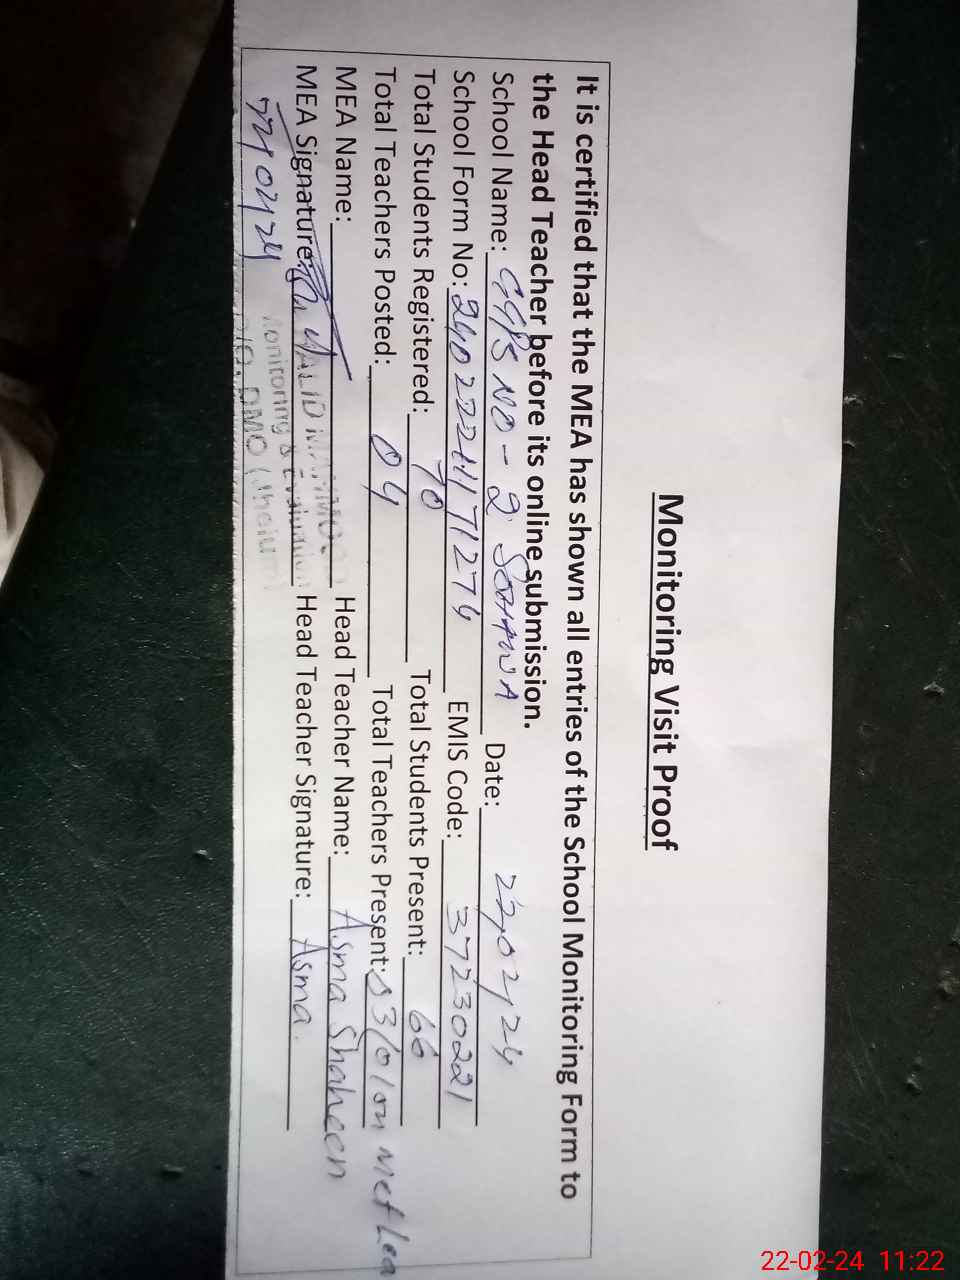 Monitoring Visit Proof
It is certified that the MEA has shown all entries of the School Monitoring Form to
the Head Teacher before its online submission.
School Name: GGPS NO-2 SOHAWA Date: 22/02/24
School Form No: EMIS Code: 37230221
Total Students Registered: 70 Total Students Present: 66
Total Teachers Posted: 04 Total Teachers Present: 03/01 on Met Lea
MEA Name: Head Teacher Name: Asma Shaheen
MEA Signature: Head Teacher Signature: Asma.
22/02/24
Monitoring &
DMO (Jhelum)
22-02-24 11:22